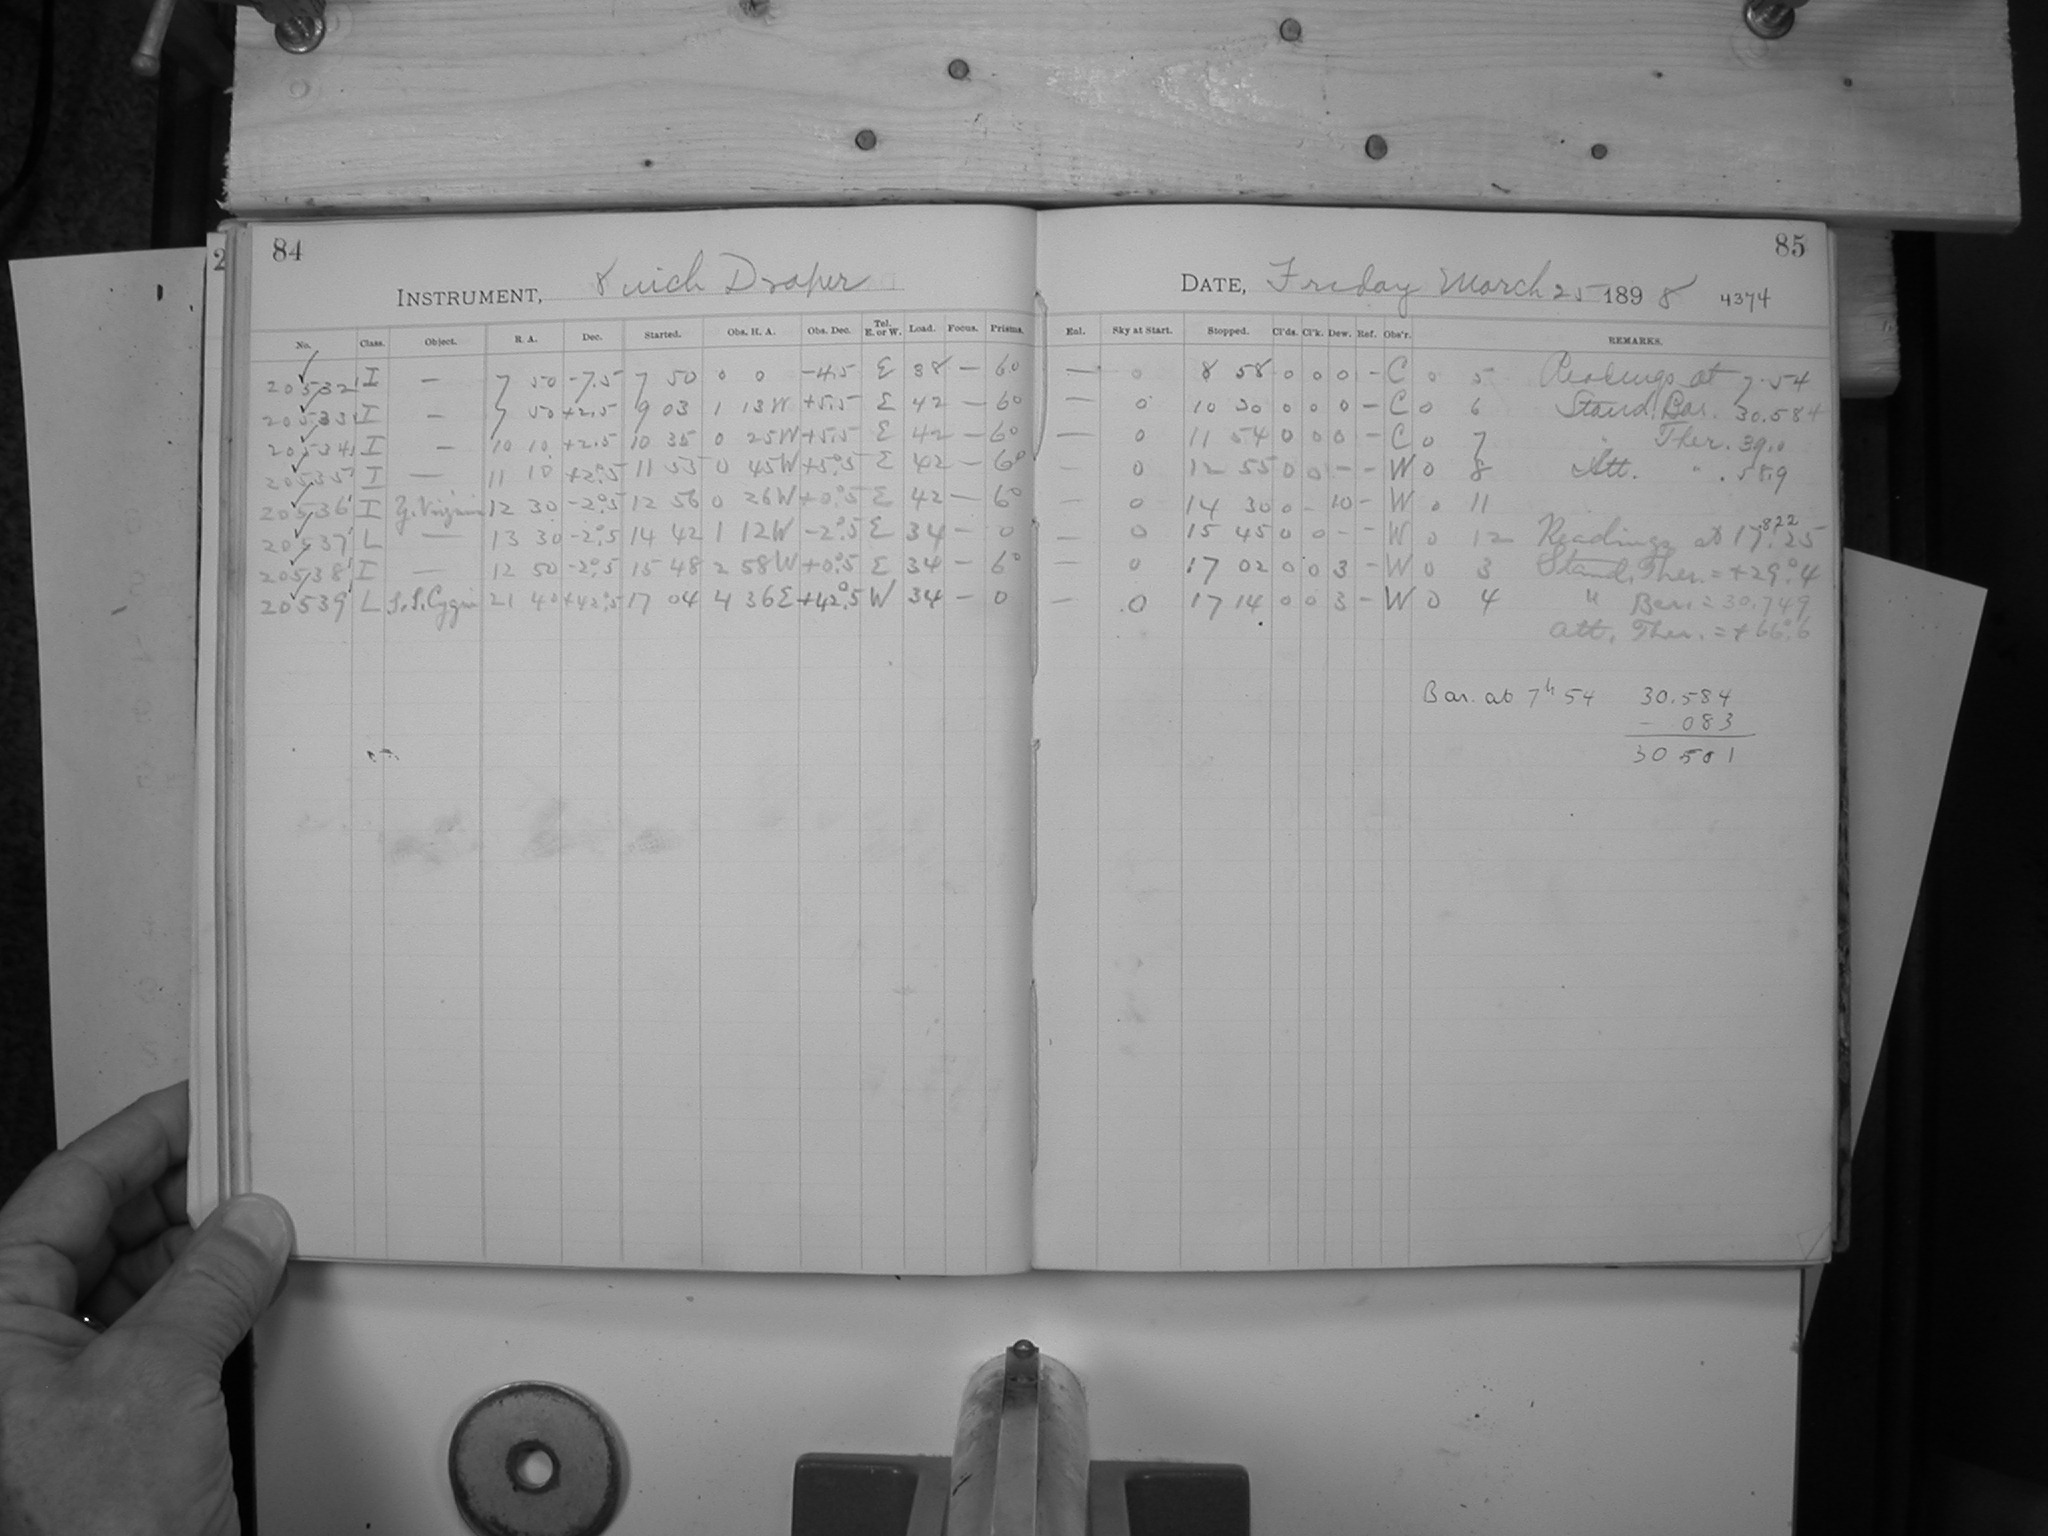 84
INSTRUMENT, 8 inch Draper
No. Class. Object. R. A. Dec. Started. Obs. H. A. Obs. Dec. Tel. E. or W. Load. Focus. Prisms.
20532 I — 7 50 -7.5 7 50 0 0 -4.5 E 38 — 60
20533 I — 7 50 +2.5 9 03 1 13W +5.5 E 42 — 60
20534 I — 10 10 +2.5 10 35 0 25W +5.5 E 42 — 60
20535 I — 11 10 +2°.5 11 55 0 45W +5°.5 E 42 — 60
20536 I 12 30 -2°.5 12 56 0 26W +0°.5 E 42 — 60
20537 L — 13 30 -2°.5 14 42 1 12W -2°.5 E 34 — 0
20538 I — 12 50 -2°.5 15 48 2 58W +0°.5 E 34 — 60
20539 L S.S.Cygni 21 40 +42°.5 17 04 4 36E +42°.5 W 34 — 0
85
DATE, Friday March 25 1898 4374
Enl. Sky at Start. Stopped. Cl'ds. Cl'k. Dew. Ref. Obs'r. REMARKS.
— 0 8 58 0 0 0 - C 0 5 Readings at 7.54
— 0 10 20 0 0 0 - C 0 6 Stand. Bar. 30.584
— 0 11 54 0 0 0 - C 0 7 " Ther. 39.0
— 0 12 55 0 0 - - W 0 8 Att. " . 58.9
— 0 14 30 0 - 10 - W 0 11
— 0 15 45 0 0 - - W 0 12 Readings at 17.25
822
— 0 17 02 0 0 3 - W 0 3 Stand. Ther. = +29°.4
— 0 17 14 0 0 3 - W 0 4 " Bar. = 30.749
Att. Ther. = +66°.6
Bar. at 7h 54 30.584
- 083
30 501